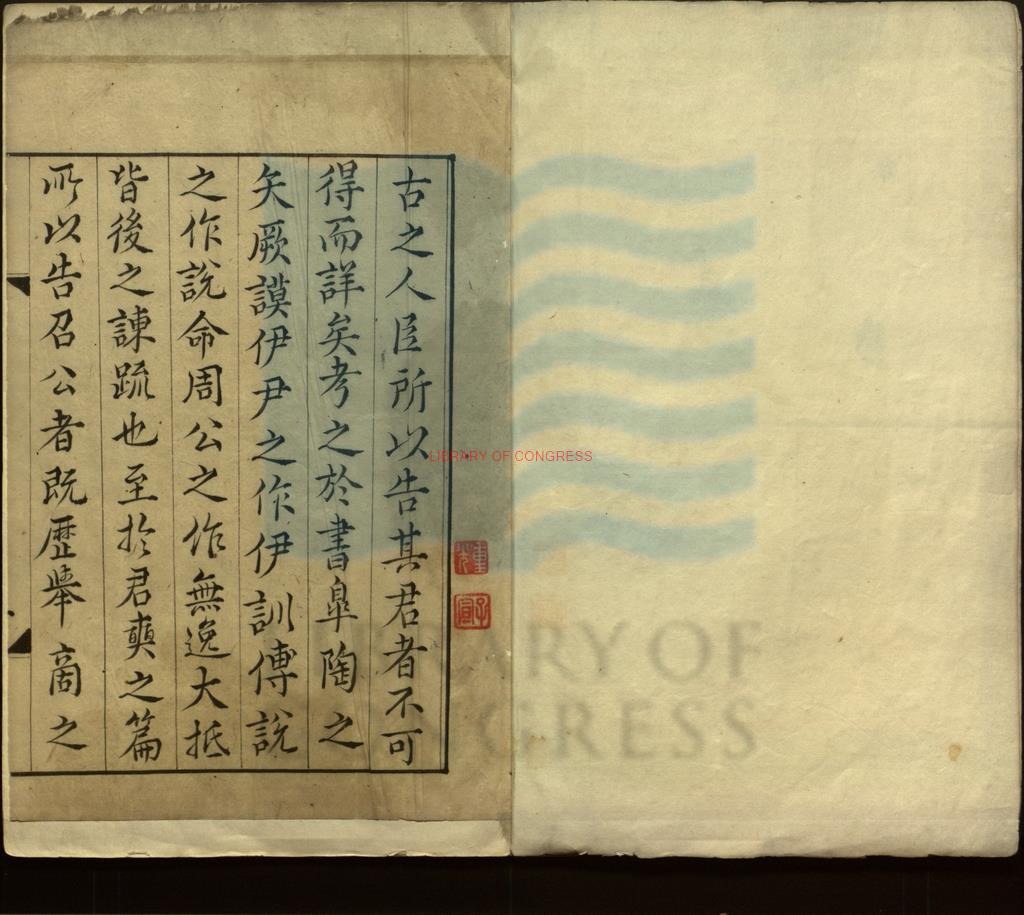 古之人臣所以告其君者不可
得而詳矣考之於書臯陶之
矢厥謨伊尹之作伊訓傅說
之作說命周公之作無逸大抵
皆後之諫䟽也至於君奭之篇
所以告召公者既歷舉商之
LIBRARY OF CONGRESS
LIBRARY OF
CONGRESS